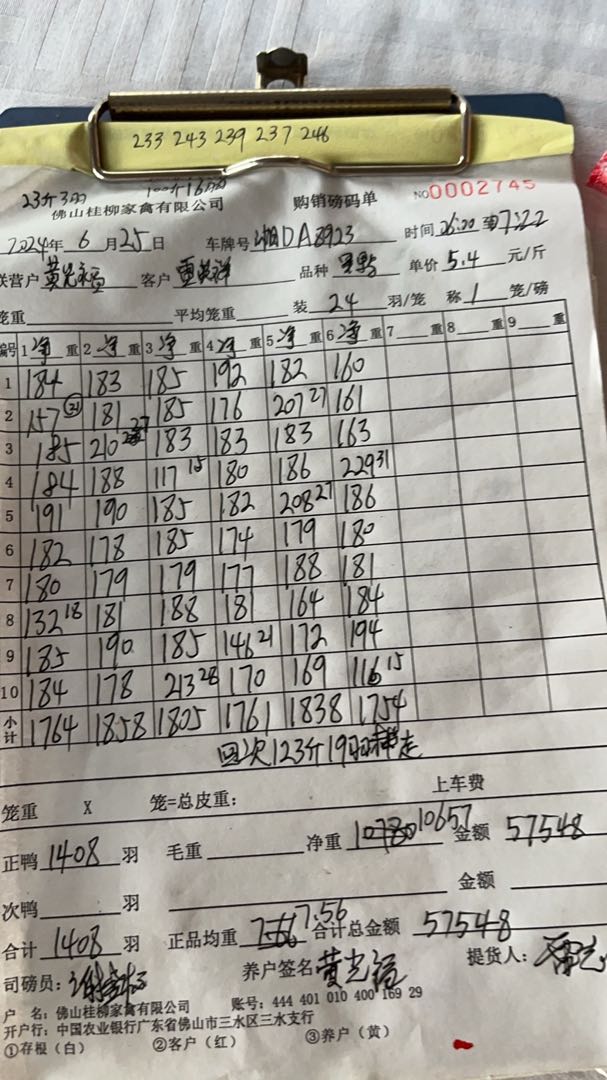 233 243 239 237 246
23斤3羽 100斤16羽
佛山桂柳家禽有限公司 购销磅码单 NO0002745
2024年 6月25日 车牌号 湘DA8923 时间 至7:22
联营户 黄光福 客户 品种 单价 5.4 元/斤
笼重 平均笼重 装 24 羽/笼 称 1 笼/磅
编号 1净重 2净重 3净重 4净重 5净重 6净重 7重 8重 9重
1 184 183 185 192 182 160
2 157 21 181 185 176 207 27 161
3 185 210 27 183 183 183 163
4 184 188 117 15 180 186 229 31
5 191 190 185 182 208 27 186
6 182 178 185 174 179 180
7 180 179 179 177 188 181
8 132 18 181 188 181 164 184
9 185 190 185 146 21 172 194
10 184 178 213 28 170 169 116 15
小计 1764 1858 1805 1761 1838 1754
123斤19羽
上车费
笼重 X 笼=总皮重:
正鸭 1408 羽 毛重 净重 10657 金额 57548
次鸭 羽 金额
合计 1408 羽 正品均重 7.56 合计总金额 57548
司磅员: 养户签名 黄光福 提货人:
户 名: 佛山桂柳家禽有限公司 账号: 444 401 010 400 169 29
开户行: 中国农业银行广东省佛山市三水区三水支行
①存根(白) ②客户(红) ③养户(黄)